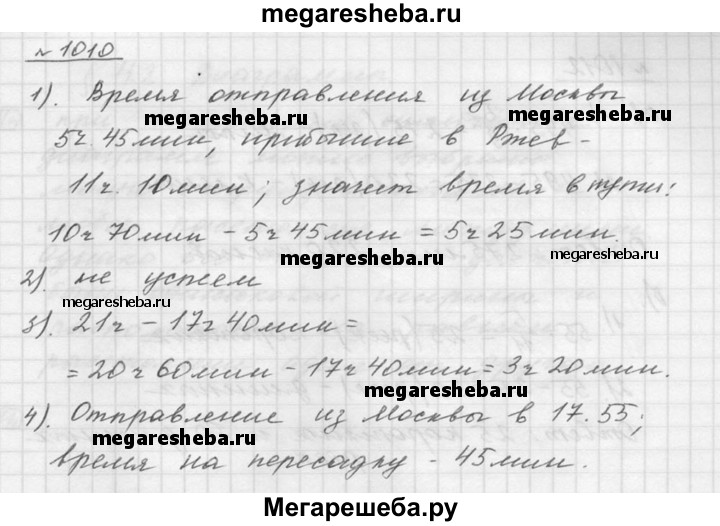 megaresheba.ru
№ 1010
1). Время отправления из Москвы
megaresheba.ru megaresheba.ru
5ч. 45мин, прибытие в Ржев -
11ч. 10мин; значит время в пути:
10ч 70мин - 5ч 45мин = 5ч 25мин.
megaresheba.ru
2). не успеем
megaresheba.ru
3). 21ч - 17ч 40мин =
= 20ч 60мин - 17ч 40мин = 3ч 20мин.
megaresheba.ru
4). Отправление из Москвы в 17.55;
megaresheba.ru
время на пересадку - 45мин.
megaresheba.ru
Мегарешеба.ру